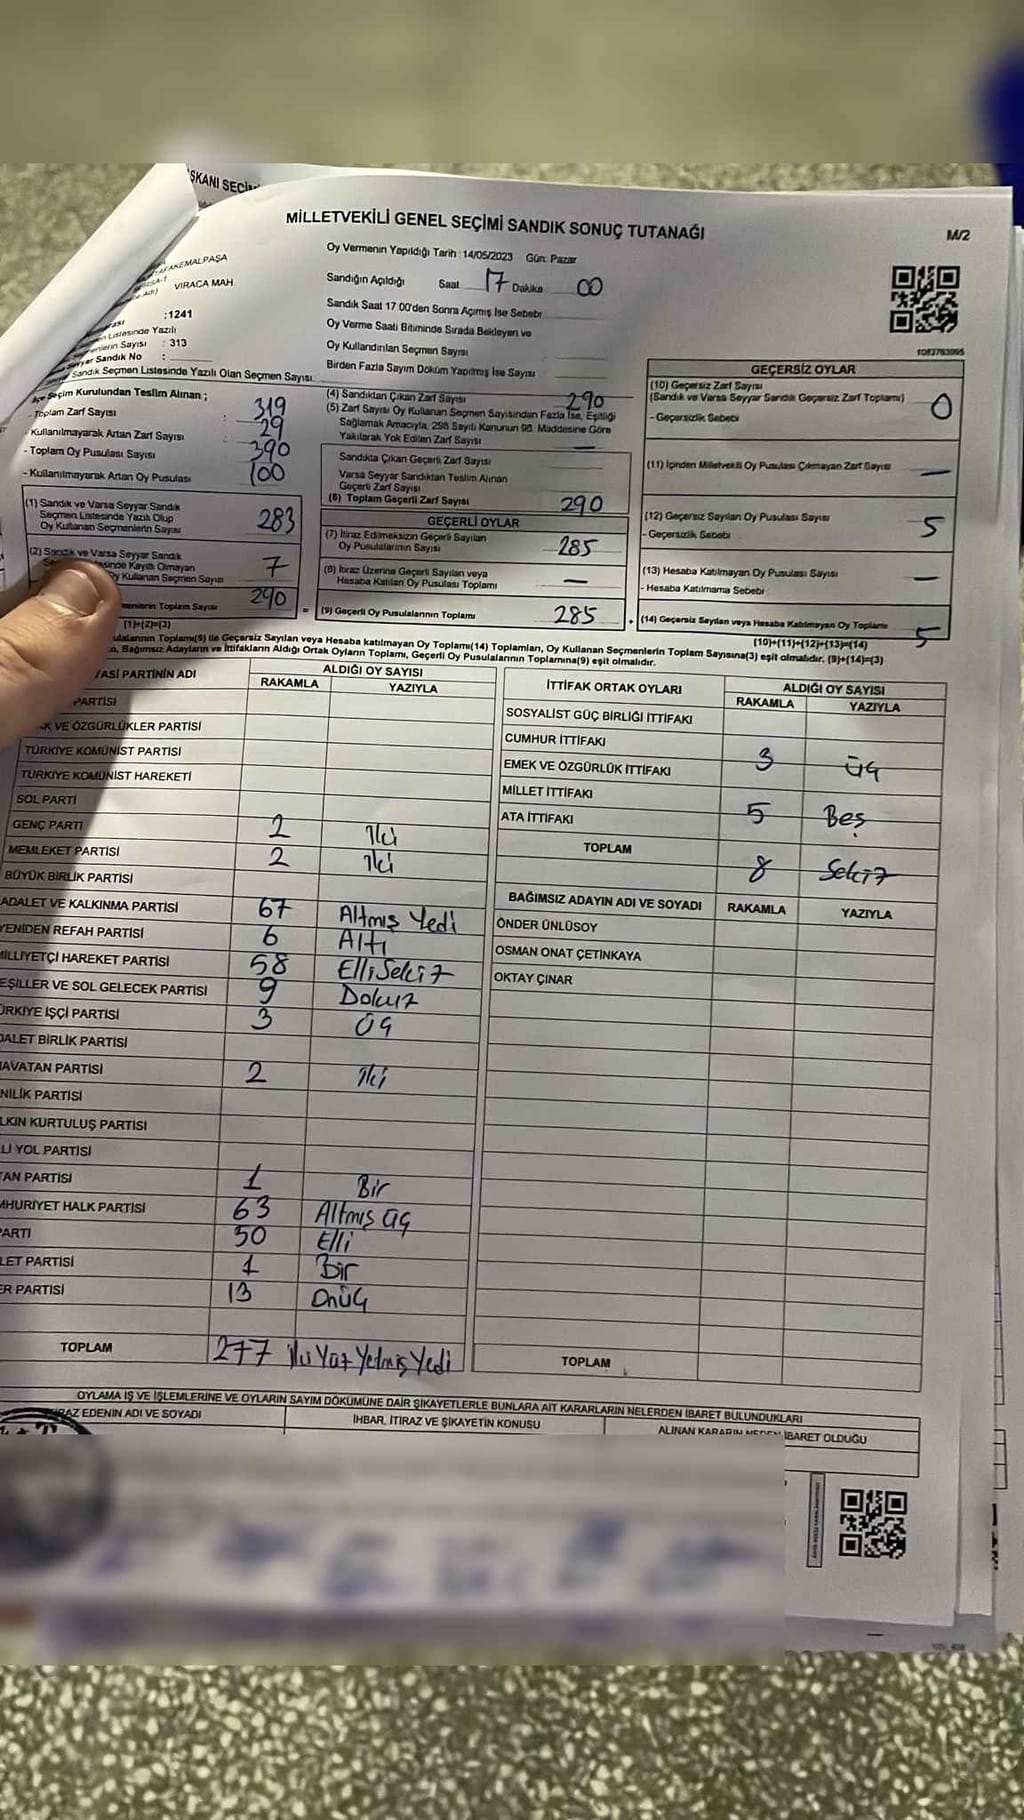 ŞKANI SEÇİM
MİLLETVEKİLİ GENEL SEÇİMİ SANDIK SONUÇ TUTANAĞI
M/2
Oy Vermenin Yapıldığı Tarih : 14/05/2023 Gün: Pazar
AFAKEMALPAŞA
VIRACA MAH.
Sandığın Açıldığı Saat 17 Dakika 00
Sandık Saat 17:00'den Sonra Açımış İse Sebebi
:1241
Oy Verme Saati Bitiminde Sırada Bekleyen ve
Oy Kullandırılan Seçmen Sayısı
Listesinde Yazılı
Sayısı : 313
Seyyar Sandık No :
Birden Fazla Sayım Döküm Yapılmış İse Sayısı
1083763095
Sandık Seçmen Listesinde Yazılı Olan Seçmen Sayısı
Seçim Kurulundan Teslim Alınan ;
- Toplam Zarf Sayısı : 319
- Kullanılmayarak Artan Zarf Sayısı : 29
- Toplam Oy Pusulası Sayısı 390
- Kullanılmayarak Artan Oy Pusulası 100
(1) Sandık ve Varsa Seyyar Sandık
Seçmen Listesinde Yazılı Olup
Oy Kullanan Seçmenlerin Sayısı 283
(2) Sandık ve Varsa Seyyar Sandık
esinde Kayıtlı Olmayan
Oy Kullanan Seçmen Sayısı 7
menlerin Toplam Sayısı 290
(1)+(2)=(3)
(4) Sandıktan Çıkan Zarf Sayısı 290
(5) Zarf Sayısı Oy Kullanan Seçmen Sayısından Fazla İse, Eşitliği
Sağlamak Amacıyla, 298 Sayılı Kanunun 98. Maddesine Göre
Yakılarak Yok Edilen Zarf Sayısı —
Sandıkta Çıkan Geçerli Zarf Sayısı
Varsa Seyyar Sandıktan Teslim Alınan
Geçerli Zarf Sayısı
(6) Toplam Geçerli Zarf Sayısı 290
GEÇERLİ OYLAR
(7) İtiraz Edilmeksizin Geçerli Sayılan
Oy Pusulalarının Sayısı 285
(8) İtiraz Üzerine Geçerli Sayılan veya
Hesaba Katılan Oy Pusulası Toplamı —
= (9) Geçerli Oy Pusulalarının Toplamı 285
GEÇERSİZ OYLAR
(10) Geçersiz Zarf Sayısı
(Sandık ve Varsa Seyyar Sandık Geçersiz Zarf Toplamı) 0
- Geçersizlik Sebebi
(11) İçinden Milletvekili Oy Pusulası Çıkmayan Zarf Sayısı —
(12) Geçersiz Sayılan Oy Pusulası Sayısı 5
- Geçersizlik Sebebi
(13) Hesaba Katılmayan Oy Pusulası Sayısı —
- Hesaba Katılmama Sebebi
+ (14) Geçersiz Sayılan veya Hesaba Katılmayan Oy Toplamı 5
(10)+(11)+(12)+(13)=(14)
ulalarının Toplamı(9) ile Geçersiz Sayılan veya Hesaba katılmayan Oy Toplamı(14) Toplamları, Oy Kullanan Seçmenlerin Toplam Sayısına(3) eşit olmalıdır. (9)+(14)=(3)
Bağımsız Adayların ve İttifakların Aldığı Ortak Oyların Toplamı, Geçerli Oy Pusulalarının Toplamına(9) eşit olmalıdır.
YASİ PARTİNİN ADI ALDIĞI OY SAYISI
RAKAMLA YAZIYLA
PARTİSİ
K VE ÖZGÜRLÜKLER PARTİSİ
TÜRKİYE KOMÜNİST PARTİSİ
TÜRKİYE KOMÜNİST HAREKETİ
SOL PARTİ
GENÇ PARTİ 2 İki
MEMLEKET PARTİSİ 2 İki
BÜYÜK BİRLİK PARTİSİ
ADALET VE KALKINMA PARTİSİ 67 Altmış Yedi
YENİDEN REFAH PARTİSİ 6 Altı
MİLLİYETÇİ HAREKET PARTİSİ 58 Elli Sekiz
EŞİLLER VE SOL GELECEK PARTİSİ 9 Dokuz
ÜRKİYE İŞÇİ PARTİSİ 3 Üç
DALET BİRLİK PARTİSİ
NAVATAN PARTİSİ 2 İki
NİLİK PARTİSİ
LKIN KURTULUŞ PARTİSİ
Lİ YOL PARTİSİ
TAN PARTİSİ 1 Bir
MHURİYET HALK PARTİSİ 63 Altmış üç
PARTİ 50 Elli
LET PARTİSİ 1 Bir
ER PARTİSİ 13 Onüç
TOPLAM 277 İki Yüz Yetmiş Yedi
İTTİFAK ORTAK OYLARI ALDIĞI OY SAYISI
RAKAMLA YAZIYLA
SOSYALİST GÜÇ BİRLİĞİ İTTİFAKI
CUMHUR İTTİFAKI 3 Üç
EMEK VE ÖZGÜRLÜK İTTİFAKI
MİLLET İTTİFAKI 5 Beş
ATA İTTİFAKI
TOPLAM 8 Sekiz
BAĞIMSIZ ADAYIN ADI VE SOYADI RAKAMLA YAZIYLA
ÖNDER ÜNLÜSOY
OSMAN ONAT ÇETİNKAYA
OKTAY ÇINAR
TOPLAM
OYLAMA İŞ VE İŞLEMLERİNE VE OYLARIN SAYIM DÖKÜMÜNE DAİR ŞİKAYETLERLE BUNLARA AİT KARARLARIN NELERDEN İBARET BULUNDUKLARI
RAZ EDENİN ADI VE SOYADI İHBAR, İTİRAZ VE ŞİKAYETİN KONUSU ALINAN KARARIN NEDEN İBARET OLDUĞU